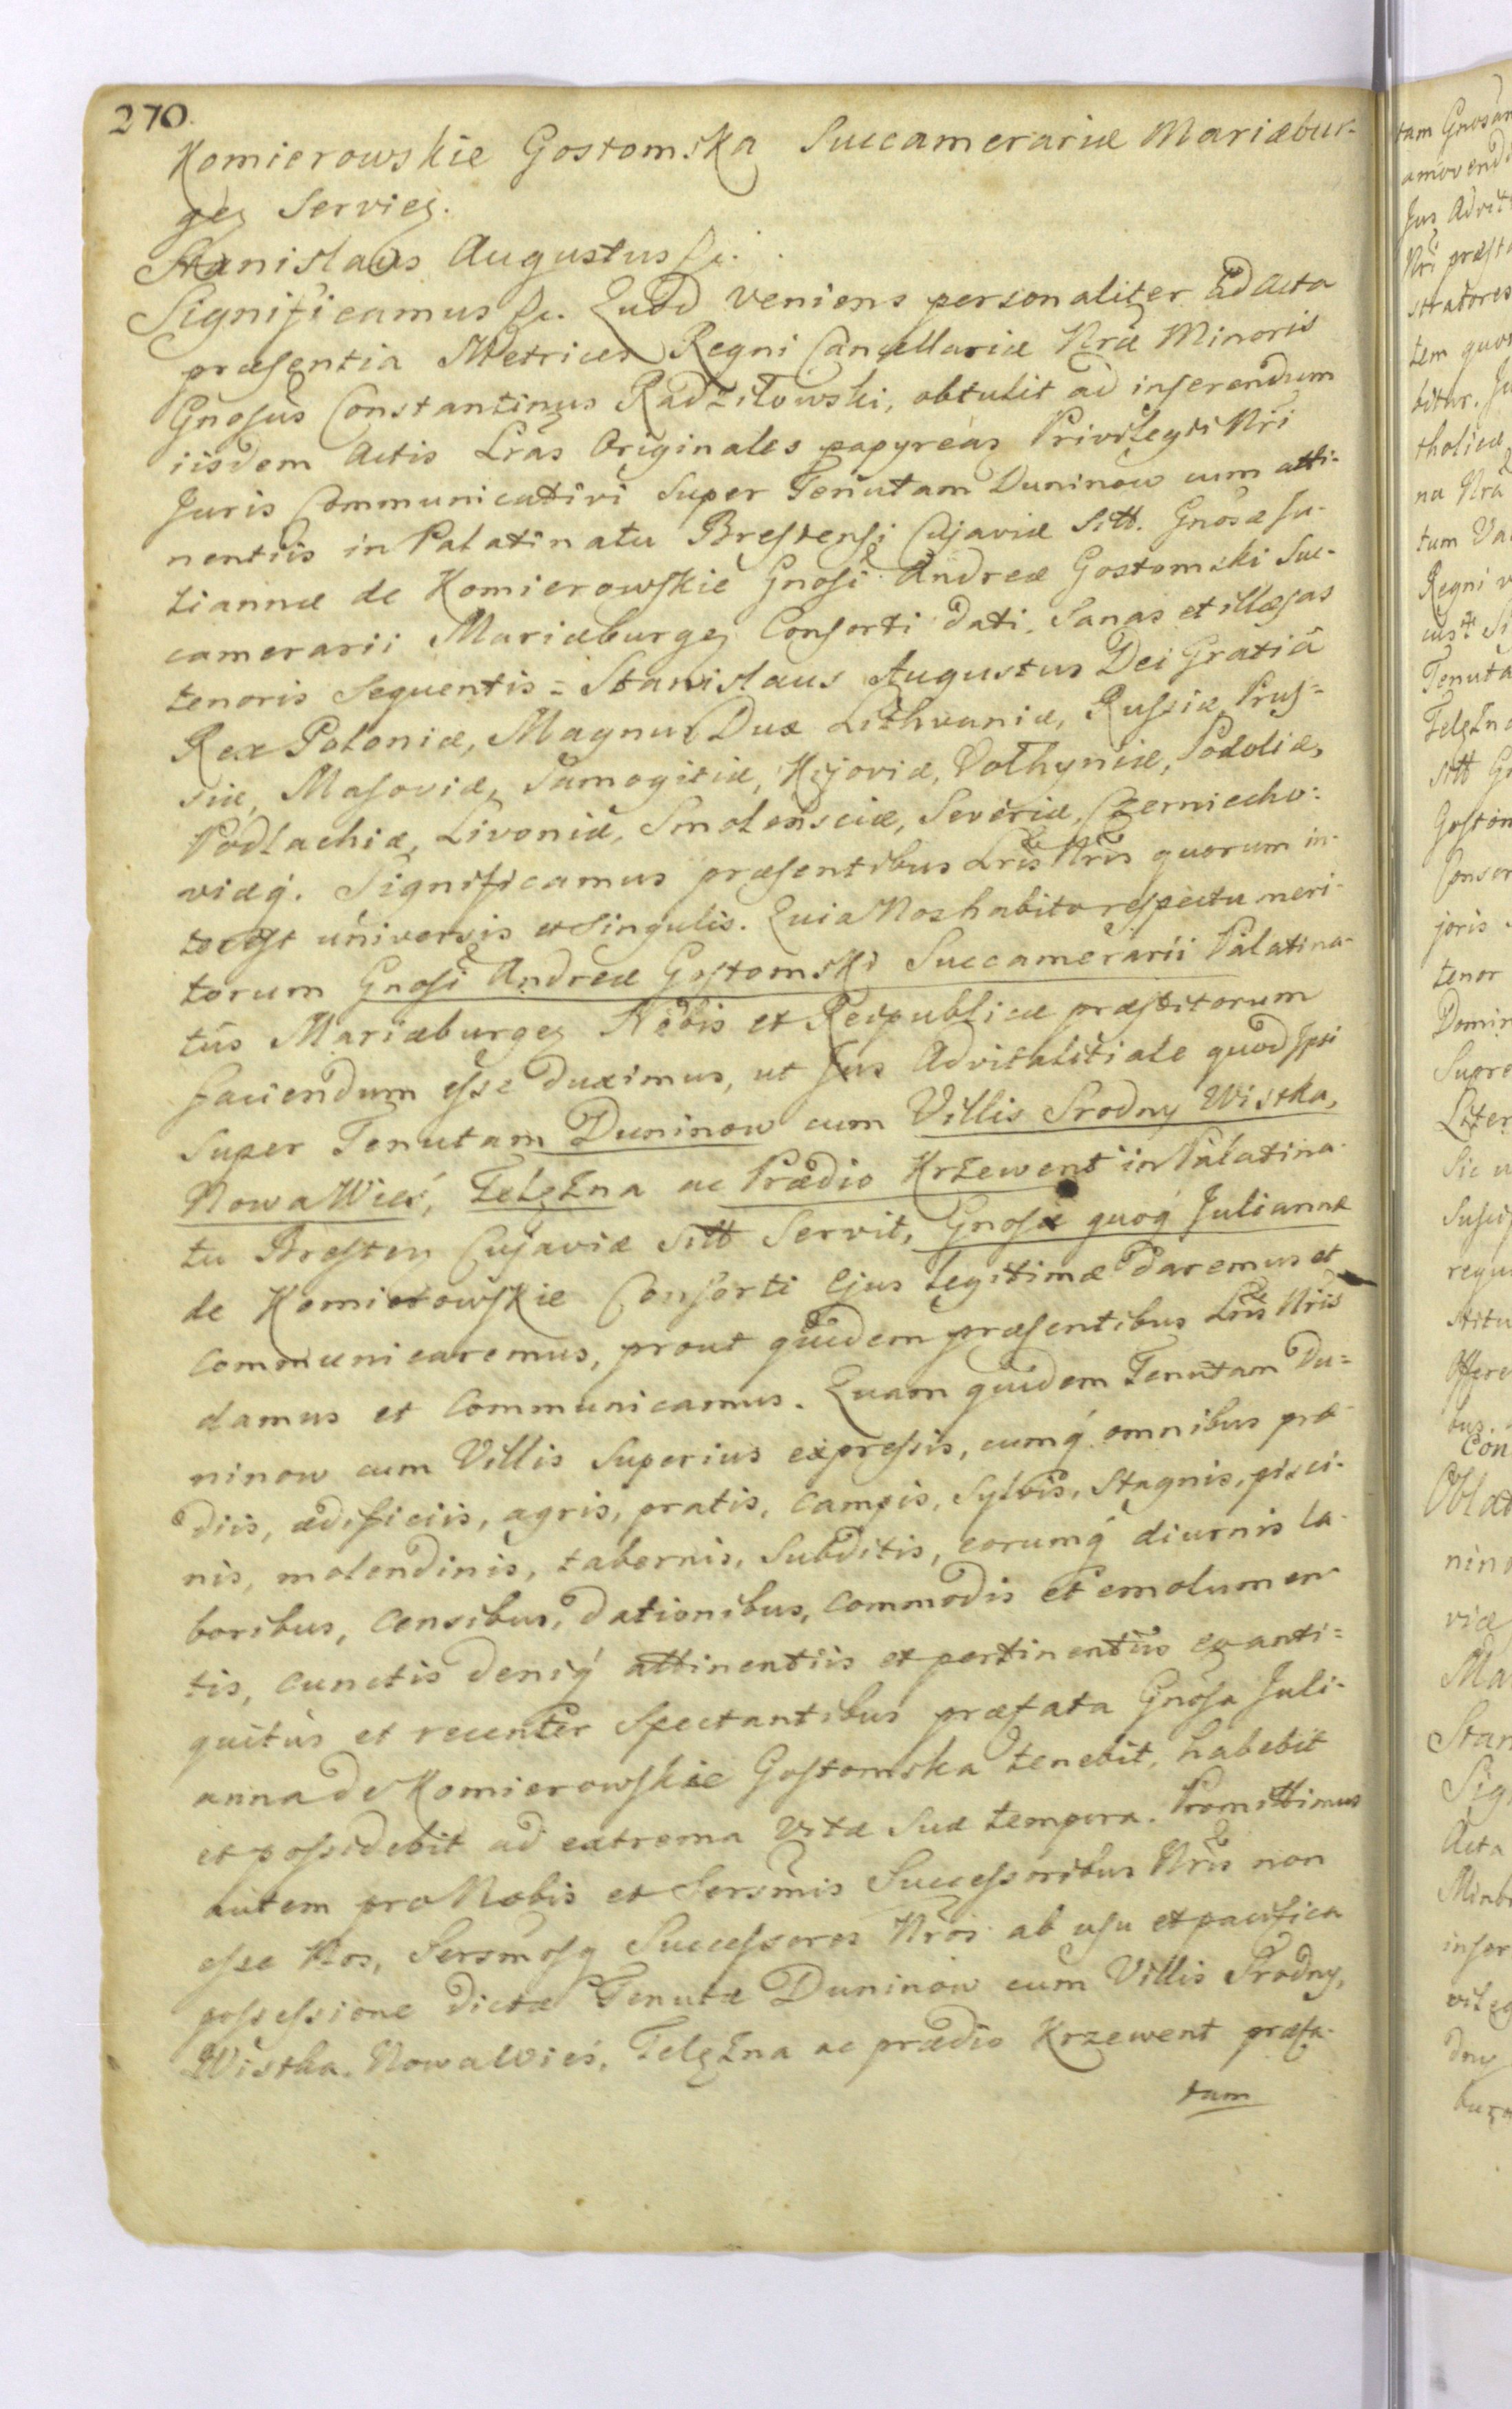 270.
Komierowskie Gostomska Succamerariæ Mariæbur-
geṅ Servieṅ.
Stanislaus Augustus &c.
Significamus &c. Quod veniens personaliter ad Acta
præsentia Metrices Regni Cancellariæ Nræ Minoris
Gnosus Constantinus Radziłowski, obtulit ad inserendum
iisdem Actis Lras Originales papyreas Privilegii Nri
Juris Communicativi super Tenutam Duninow cum atti-
nentiis in Palatinatu Brestensi Cujaviæ sitt. Gnosæ Ju-
liannæ de Komierowskie Gnosi Andreæ Gostomski Suc-
camerarii Mariæburgeṅ Consorti dati. Sanas et illæsas
tenoris sequentis = Stanislaus Augustus Dei Gratiâ
Rex Poloniæ, Magnus Dux Lithvaniæ, Russiæ, Prus=
siæ, Masoviæ, Samogitiæ, Kijoviæ, Volhyniæ, Podoliæ,
Podlachiæ, Livoniæ, Smolensciæ, Severiæ, Czerniecho-
viæq́. Significamus præsentibus Lris Nris quorum in-
terest universis et singulis. Quia Nos habito respectu meri-
torum Gnosi Andreæ Gostomski Succamerarii Palatina-
tûs Mariæburgeṅ Nobis et Reipublicæ præstitorum
faciendum esse duximus, ut Jus Advitalitiale quod Ipsi
super Tenutam Duninow cum Villis Srodny Wistka,
Nowa Wieś, Telężna ac Prædio Krzewent in Palatina-
tu Bresten Cujaviæ sitt Servit, Gnosæ quoq́ Juliannæ
de Komierowskie Consorti Ejus legitimæ daremus et
communicaremus, prout quidem præsentibus Lris Nris
damus et communicamus. Quam quidem Tenutam Du=
ninow cum Villis superius expressis, cumq́ omnibus præ-
diis, ædificiis, agris, pratis, campis, sylvis, stagnis, pisci-
nis, molendinis, tabernis, subditis, eorumq́ diurnis la-
boribus, censibus, dationibus, commodis et emolumen-
tis, cunctis deniq́ attinentiis et pertinentiis ex anti=
quitus et recenter spectantibus præfata Gnosa Juli-
anna de Komierowskie Gostomska tenebit, habebit
et possidebit ad extrema vitæ suæ tempora. Promittimus
autem pro Nobis et Sersmis Successoribus Nris non
esse Nos, Sersmosq Successores Nros ab usu et pacifica
possessione dictæ Tenutæ Duninow cum Villis Srodny,
Wistka. Nowawieś, Telężna ac prædio Krzewent præfa-
tam